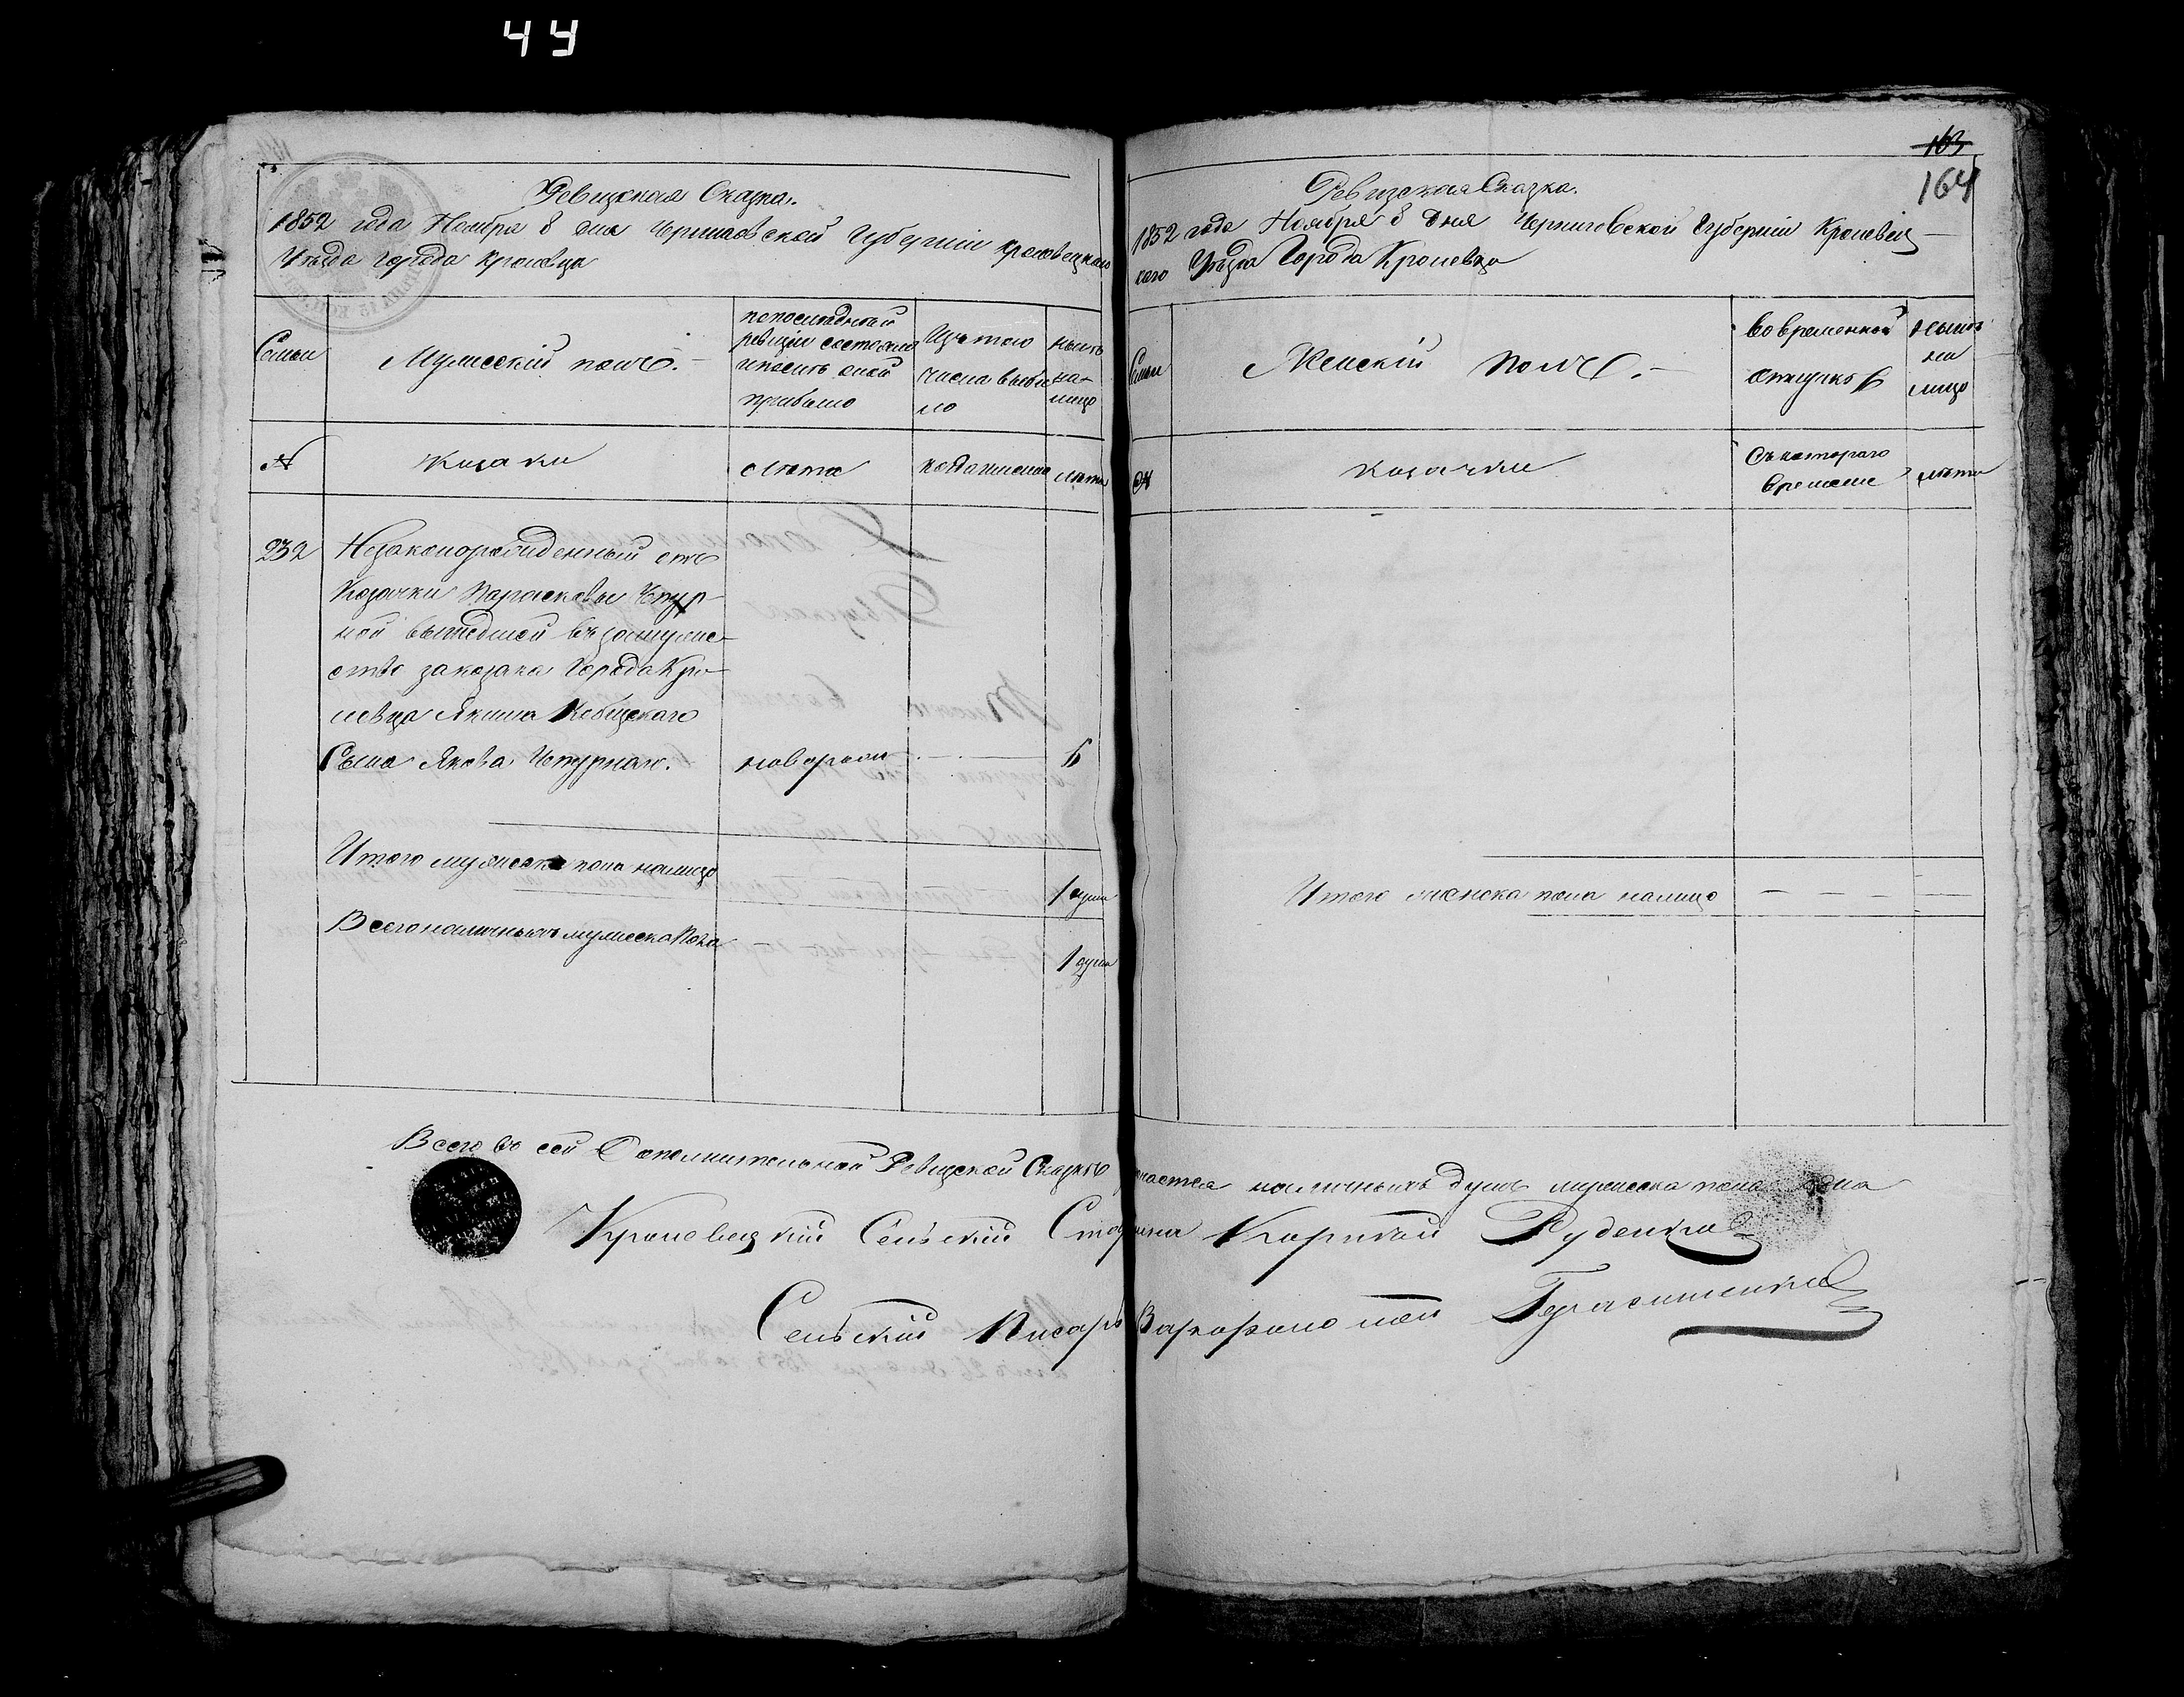 44
Ревизская Сказка.
1852 года Ноября 8 дня Черниговской Губерніи Кролевецкаго
Уѣзда города Кролевца
Семьи
Мужескій полъ.
по последней
ревизіи состояло
и после оной
прибыло
Изъ того
числа выбы
ло
Нынѣ
на-
лицо
№
Козаки
Лѣта
когда именно
Лѣта
232
Незаконорожденный отъ
Козачки Парасковьи
ной вышедшей въ замуже-
ство за козака Города Кро-
левца Якима
Сынъ Яковъ
новорожен
Итого мужеска пола налицо
1 душа
Всего наличныхъ мужеска пола
1 душа
163
164
Ревизская Сказка.
1852 года Ноября 8 дня Черниговской Губерніи Кролевец-
каго Уѣзда Города Кролевца
Семьи
Женскій полъ.
Во временной
отлучкѣ
Нынѣ
на
лицо
№
Козачки
Съ котораго
времени
лѣта
Итого женска пола налицо
Всего въ сей Дополнительной Ревизской Сказкѣ наличныхъ душъ мужеска пола одна
Кролевецкій Сельскій Старшина Корнѣй Руденко
Сельскій Писарь Герасименко